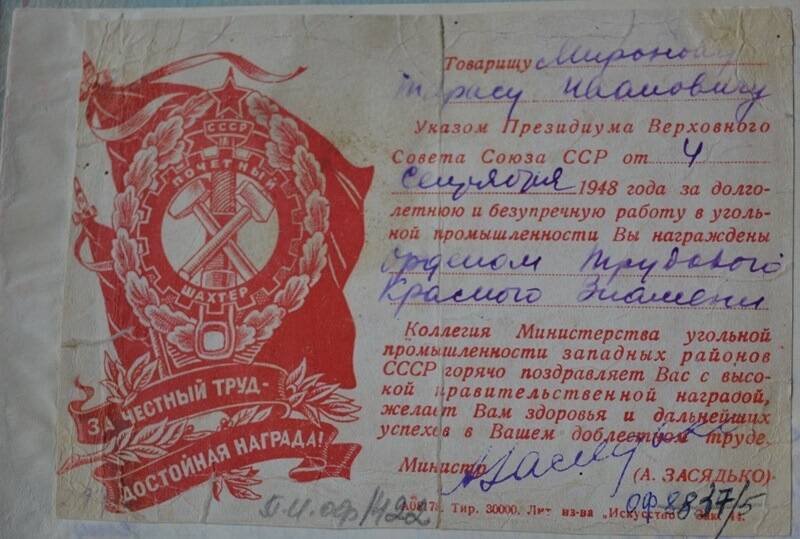 СССР
ПОЧЕТНЫЙ
ШАХТЕР
ЗА ЧЕСТНЫЙ ТРУД-
ДОСТОЙНАЯ НАГРАДА!
Товарищу Миронову
Тарасу Ивановичу
Указом Президиума Верховного
Совета Союза ССР от 4
сентября 1948 года за долго-
летнюю и безупречную работу в уголь-
ной промышленности Вы награждены
орденом Трудового
Красного Знамени
Коллегия Министерства угольной
промышленности западных районов
СССР горячо поздравляет Вас с высо-
кой правительственной наградой,
желает Вам здоровья и дальнейших
успехов в Вашем доблестном труде.
Министр
(А. ЗАСЯДЬКО)
Тир. 30000. Лит из-ва „Искусство"
оф 2837/5
оф/422